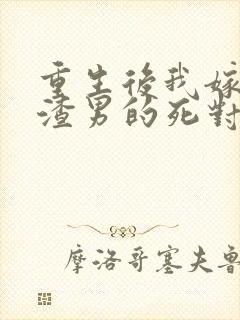 重生後我嫁
渣男的死對
摩洛哥塞夫魯